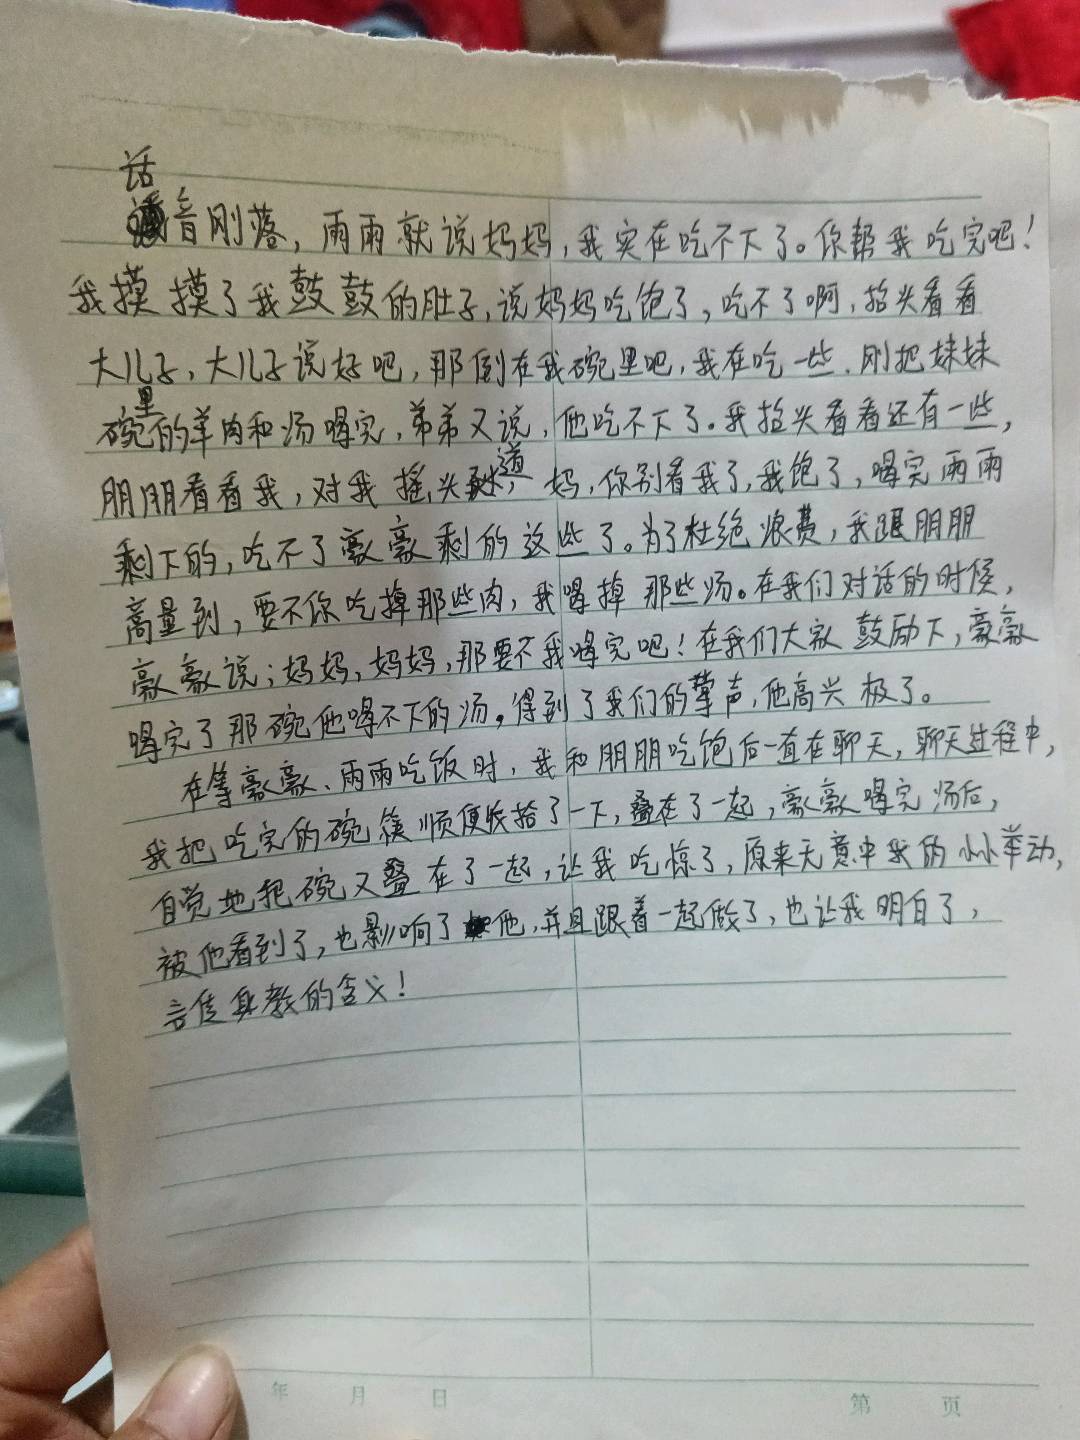 话音刚落，雨雨就说妈妈，我实在吃不下了。你帮我吃完吧！
我摸摸了我鼓鼓的肚子，说妈妈吃饱了，吃不了啊，抬头看看
大儿子，大儿子说好吧，那倒在我碗里吧，我在吃一些，刚把妹妹
碗里的羊肉和汤喝完，弟弟又说，他吃不下了。我抬头看看还有一些，
朋朋看看我，对我摇头道，妈，你别看我了，我饱了，喝完雨雨
剩下的，吃不了豪豪剩的这些了。为了杜绝浪费，我跟朋朋
商量到，要不你吃掉那些肉，我喝掉那些汤。在我们对话的时候，
豪豪说；妈妈，妈妈，那要不我喝完吧！在我们大家鼓励下，豪豪
喝完了那碗他喝不下的汤。得到了我们的掌声，他高兴极了。
在等豪豪、雨雨吃饭时，我和朋朋吃饱后一直在聊天，聊天过程中，
我把吃完的碗筷顺便收拾了一下，叠在了一起，豪豪喝完汤后，
自觉地把碗又叠在了一起，让我吃惊了，原来无意中我的小小举动，
被他看到了，也影响了他，并且跟着一起做了，也让我明白了，
言传身教的含义！
年 月 日 第 页